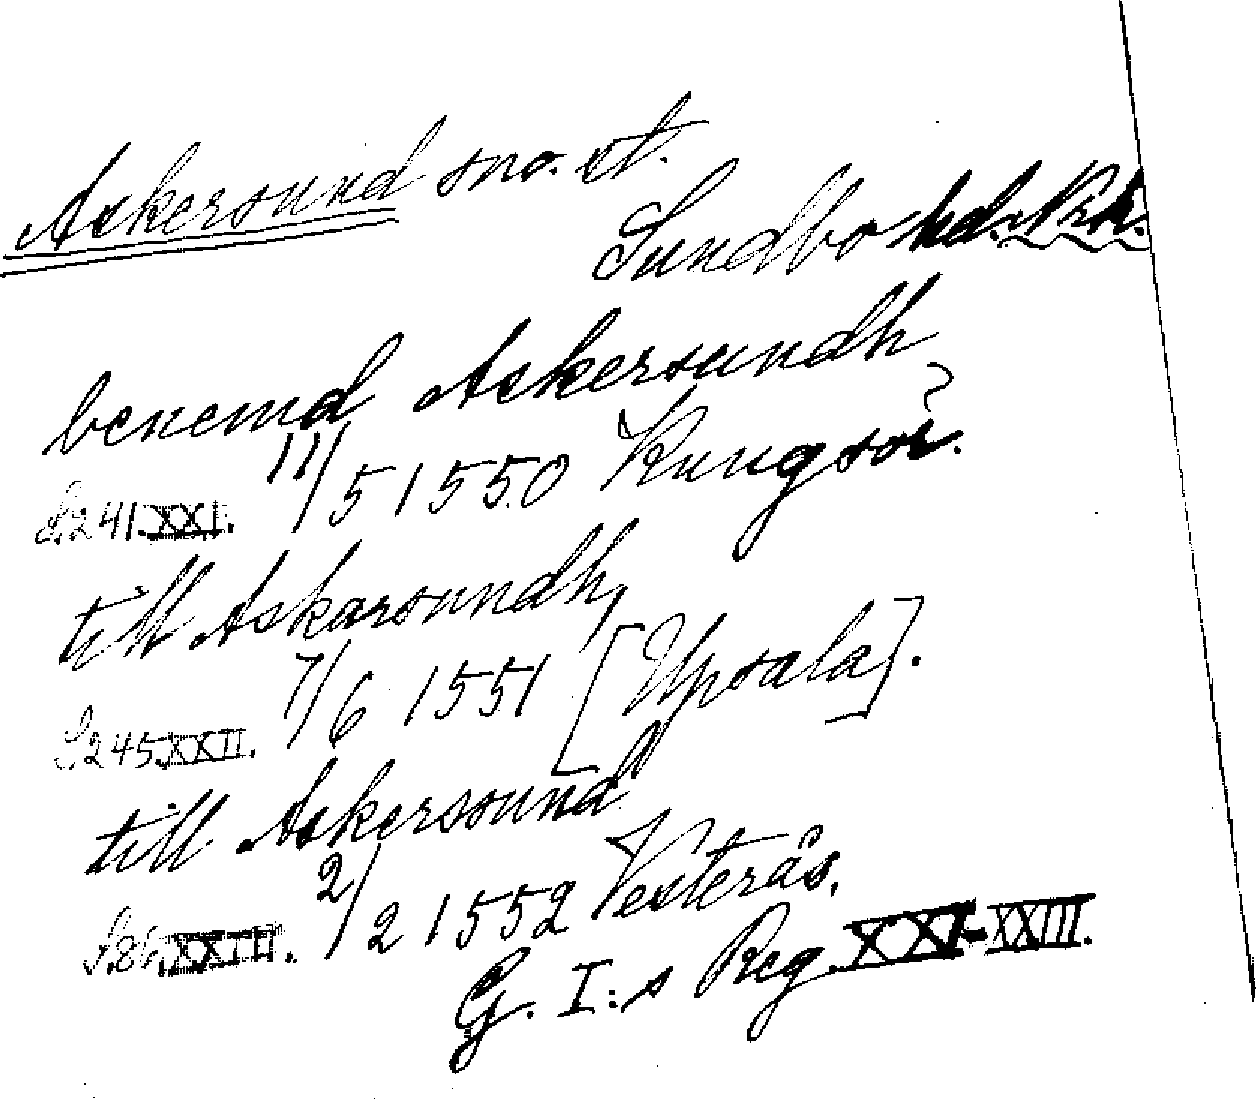 Askersund sno. st.
Sundbo hd. Nrk.
benemd Askersundh
S. 241. XXI. 11/5 1550 Kungsör.
till Askarsundh,
S. 245. XXII. 7/6 1551 [Upsala].
till Askersound
S. 86. XXIII. 2/2 1552 Vesterås.
G. I:s Reg. XXI-XXIII.